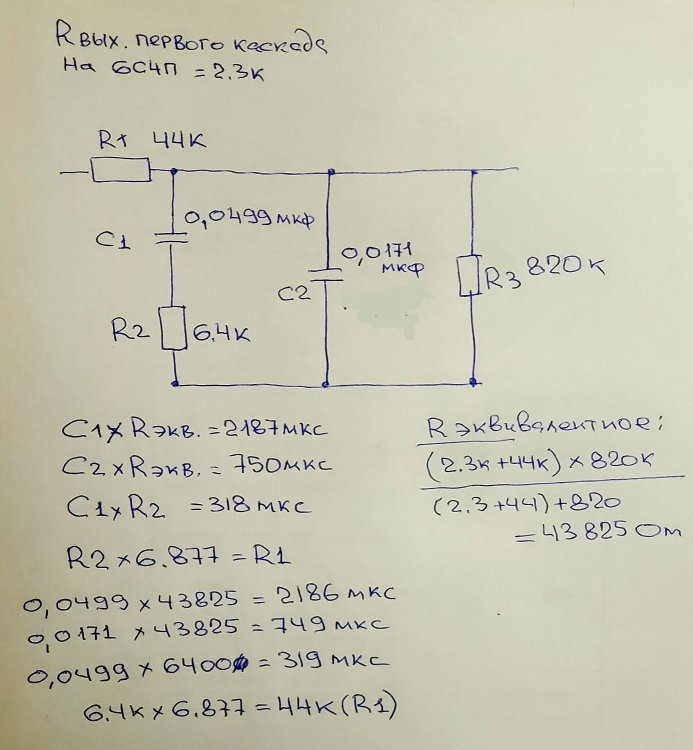 Rвых. первого каскада
На 6С4П = 2.3к
R1 44к
0,0499 мкф
C1
0,0171
мкф
C2
R3 820к
R2 6.4к
C1 x Rэкв. = 2187 мкс
C2 x Rэкв. = 750 мкс
C1 x R2 = 318 мкс
R2 x 6.877 = R1
0,0499 x 43825 = 2186 мкс
0,0171 x 43825 = 749 мкс
0,0499 x 6400 = 319 мкс
6.4к x 6.877 = 44к (R1)
R эквивалентное:
(2.3к + 44к) x 820к
(2.3 + 44) + 820
= 43825 Ом